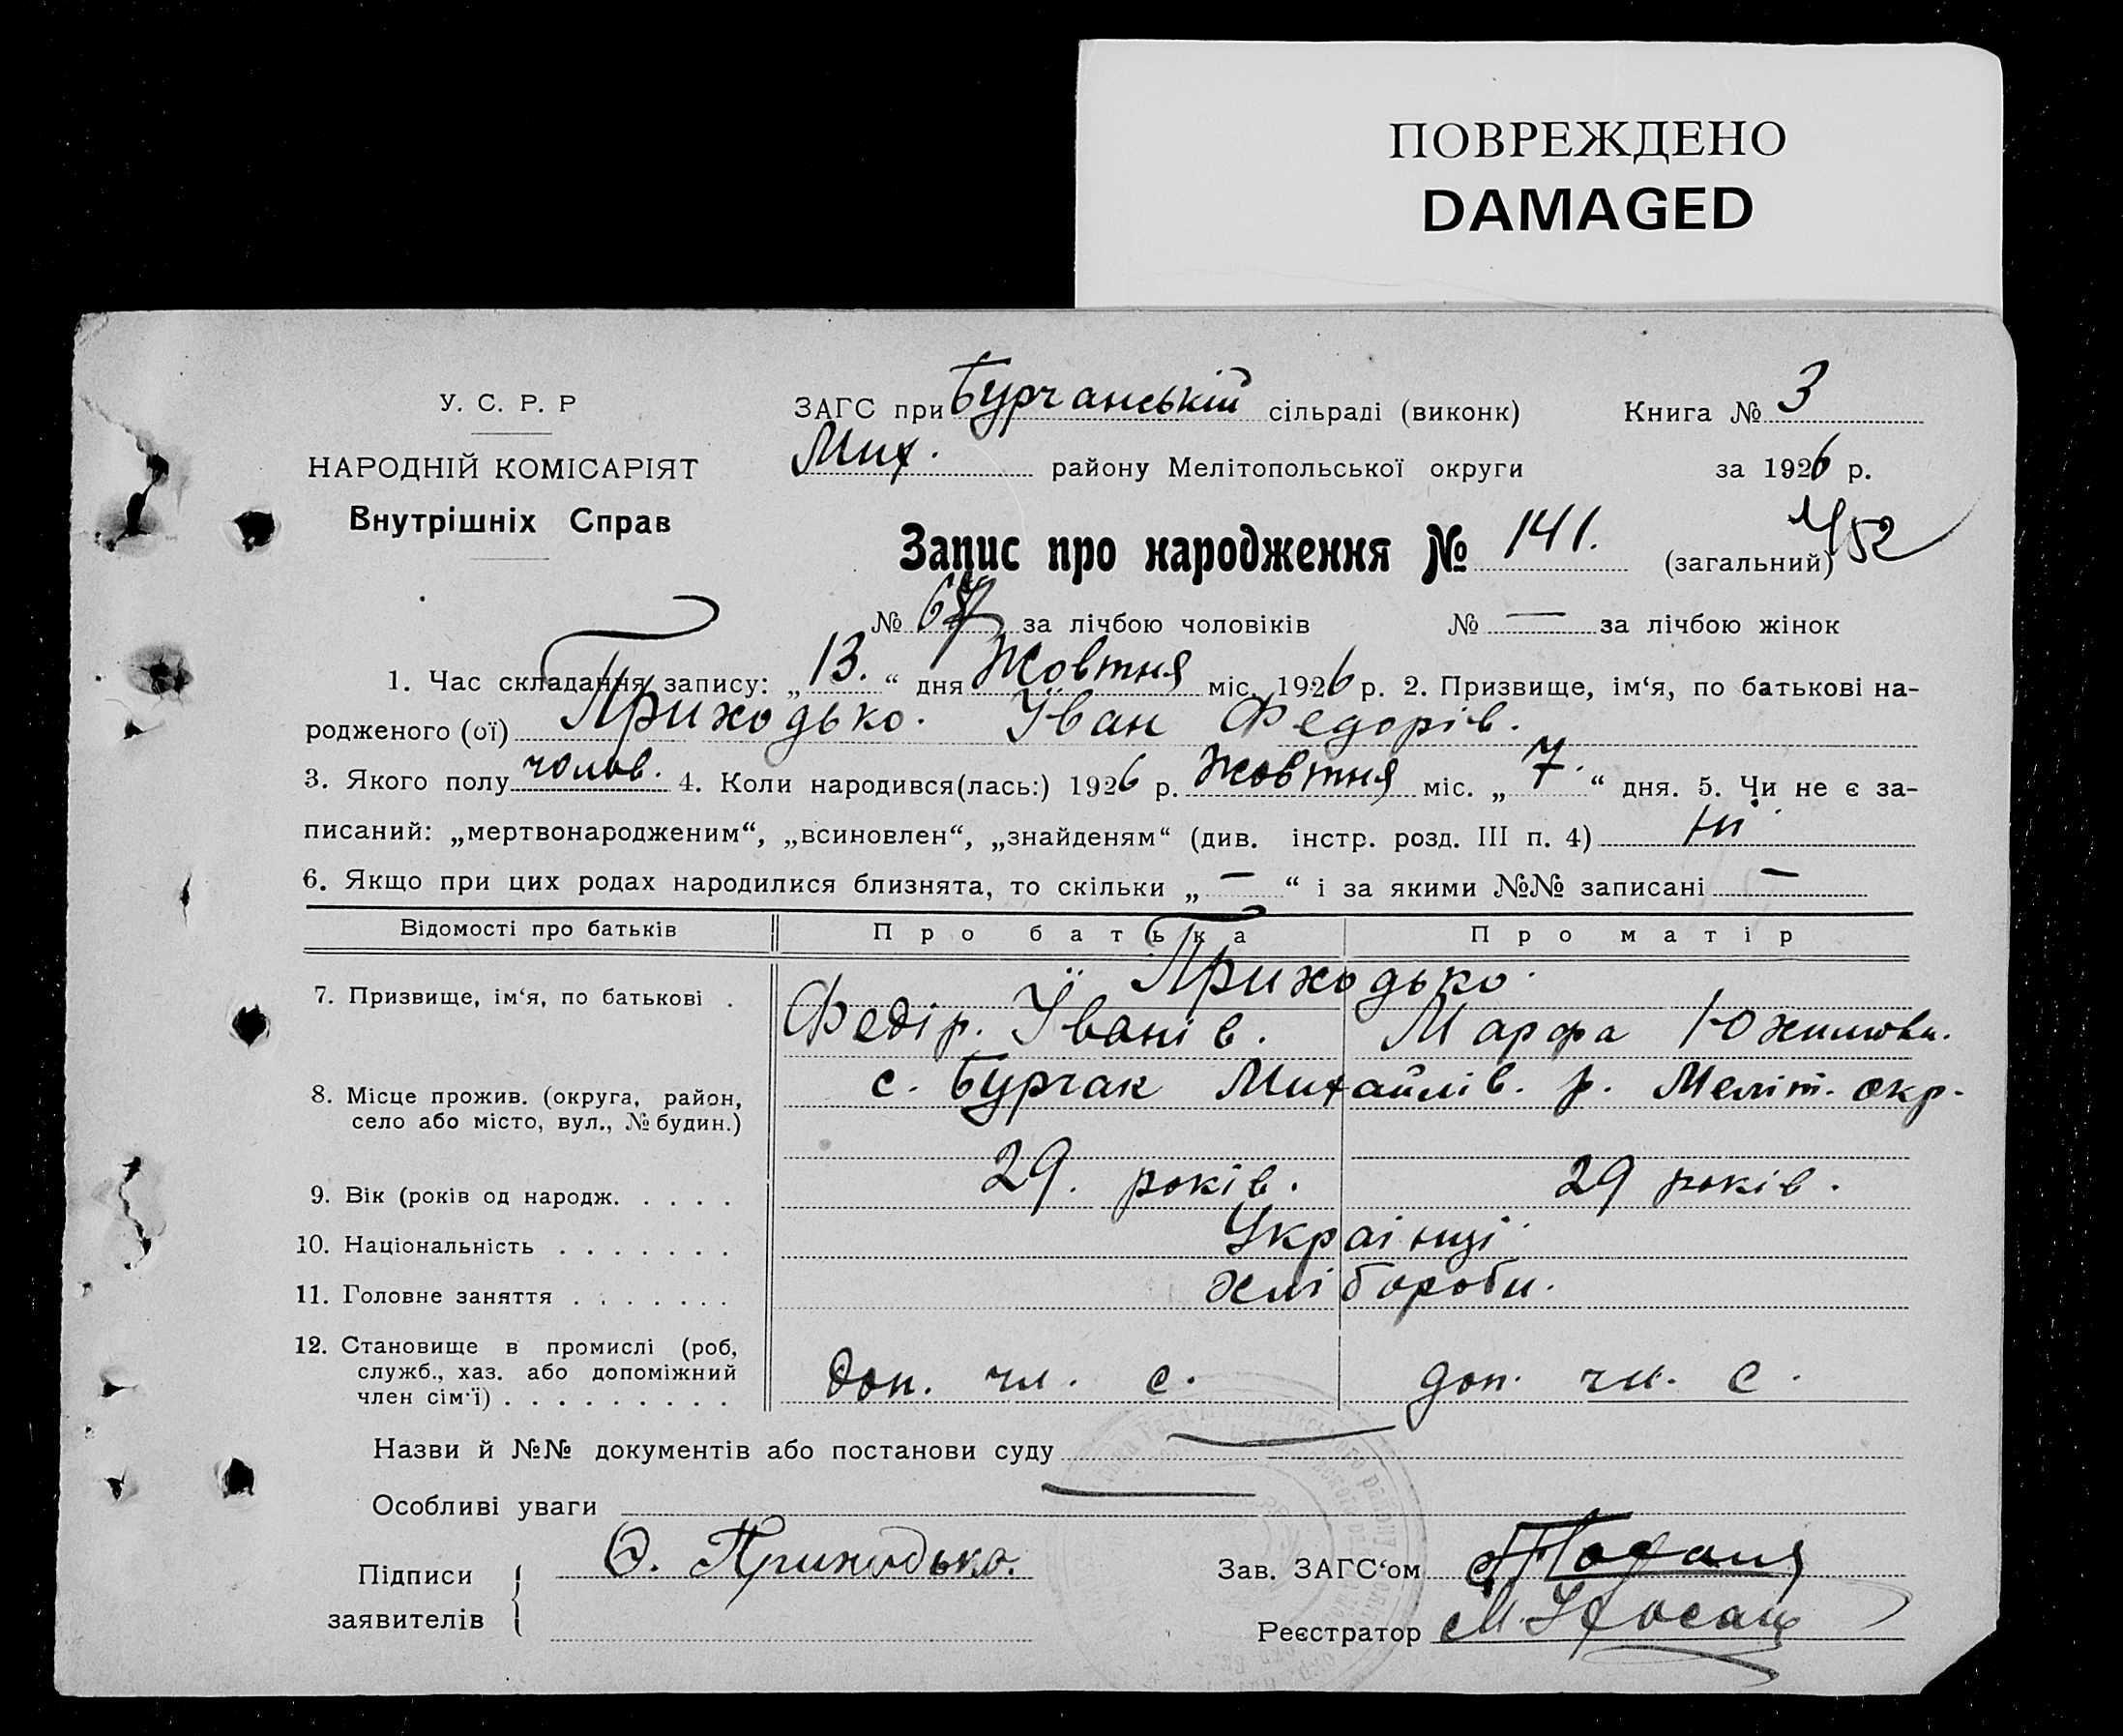 ПОВРЕЖДЕНО
DAMAGED
У. С. Р. Р
НАРОДНІЙ КОМІСАРІЯТ
Внутрішніх Справ
ЗАГС при Бурчанській сільраді (виконк) Книга № 3
Мих. району Мелітопольської округи за 1926 р.
Запис про народження № 141. (загальний) 52
№ за лічбою чоловіків № — за лічбою жінок
1. Час складання запису: „13.“ дня Жовтня міс. 1926 р. 2. Призвище, ім‘я, по батькові на-
родженого (ої) Приходько. Іван Федорів.
3. Якого полу чолов. 4. Коли народився(лась:) 1926 р. Жовтня міс. „7.“ дня. 5. Чи не є за-
писаний: „мертвонародженим“, „всиновлен“, „знайденям“ (див. інстр. розд. III п. 4) ні
6. Якщо при цих родах народилися близнята, то скільки „—“ і за якими №№ записані —
Відомості про батьків Про батька Про матір
Приходько.
7. Призвище, ім‘я, по батькові . Федір. Іванів. Марфа
8. Місце прожив. (округа, район, с. Бурчак Михайлів. р. Меліт. окр.
село або місто, вул., № будин.)
9. Вік (років од народж. . . . . 29. років. 29 років.
10. Національність . . . . . . . Украінці
11. Головне заняття . . . . . . . хлібороби.
12. Становище в промислі (роб,
служб., хаз. або допоміжний доп. чл. с. доп. чл. с.
член сім‘ї) . . . . . . . . .
Назви й №№ документів або постанови суду —
Особливі уваги —
Підписи Ф. Приходько. Зав. ЗАГС‘ом
заявителів Реєстратор